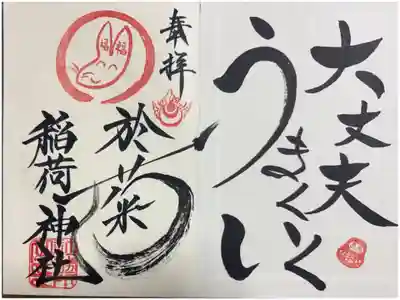 大丈夫
うまくいく
奉拝
於菊
稲荷神社
福福